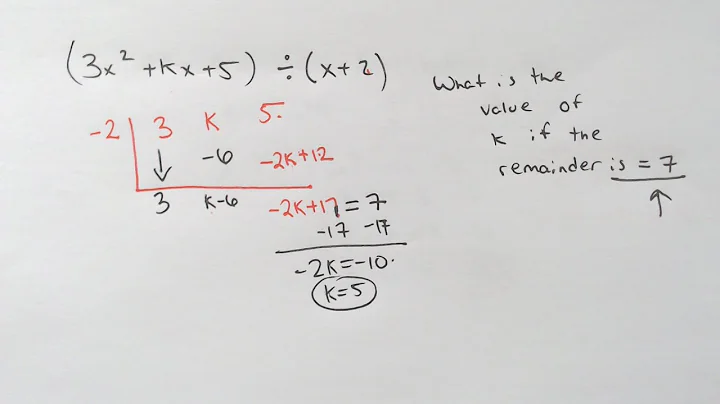 (3x² + kx + 5) ÷ (x + 2)
-2 | 3 k 5.
↓ -6 -2k+12
3 k-6 -2k+17 = 7
-17 -17
-2k = -10.
k = 5
What is the
value of
k if the
remainder is = 7
↑